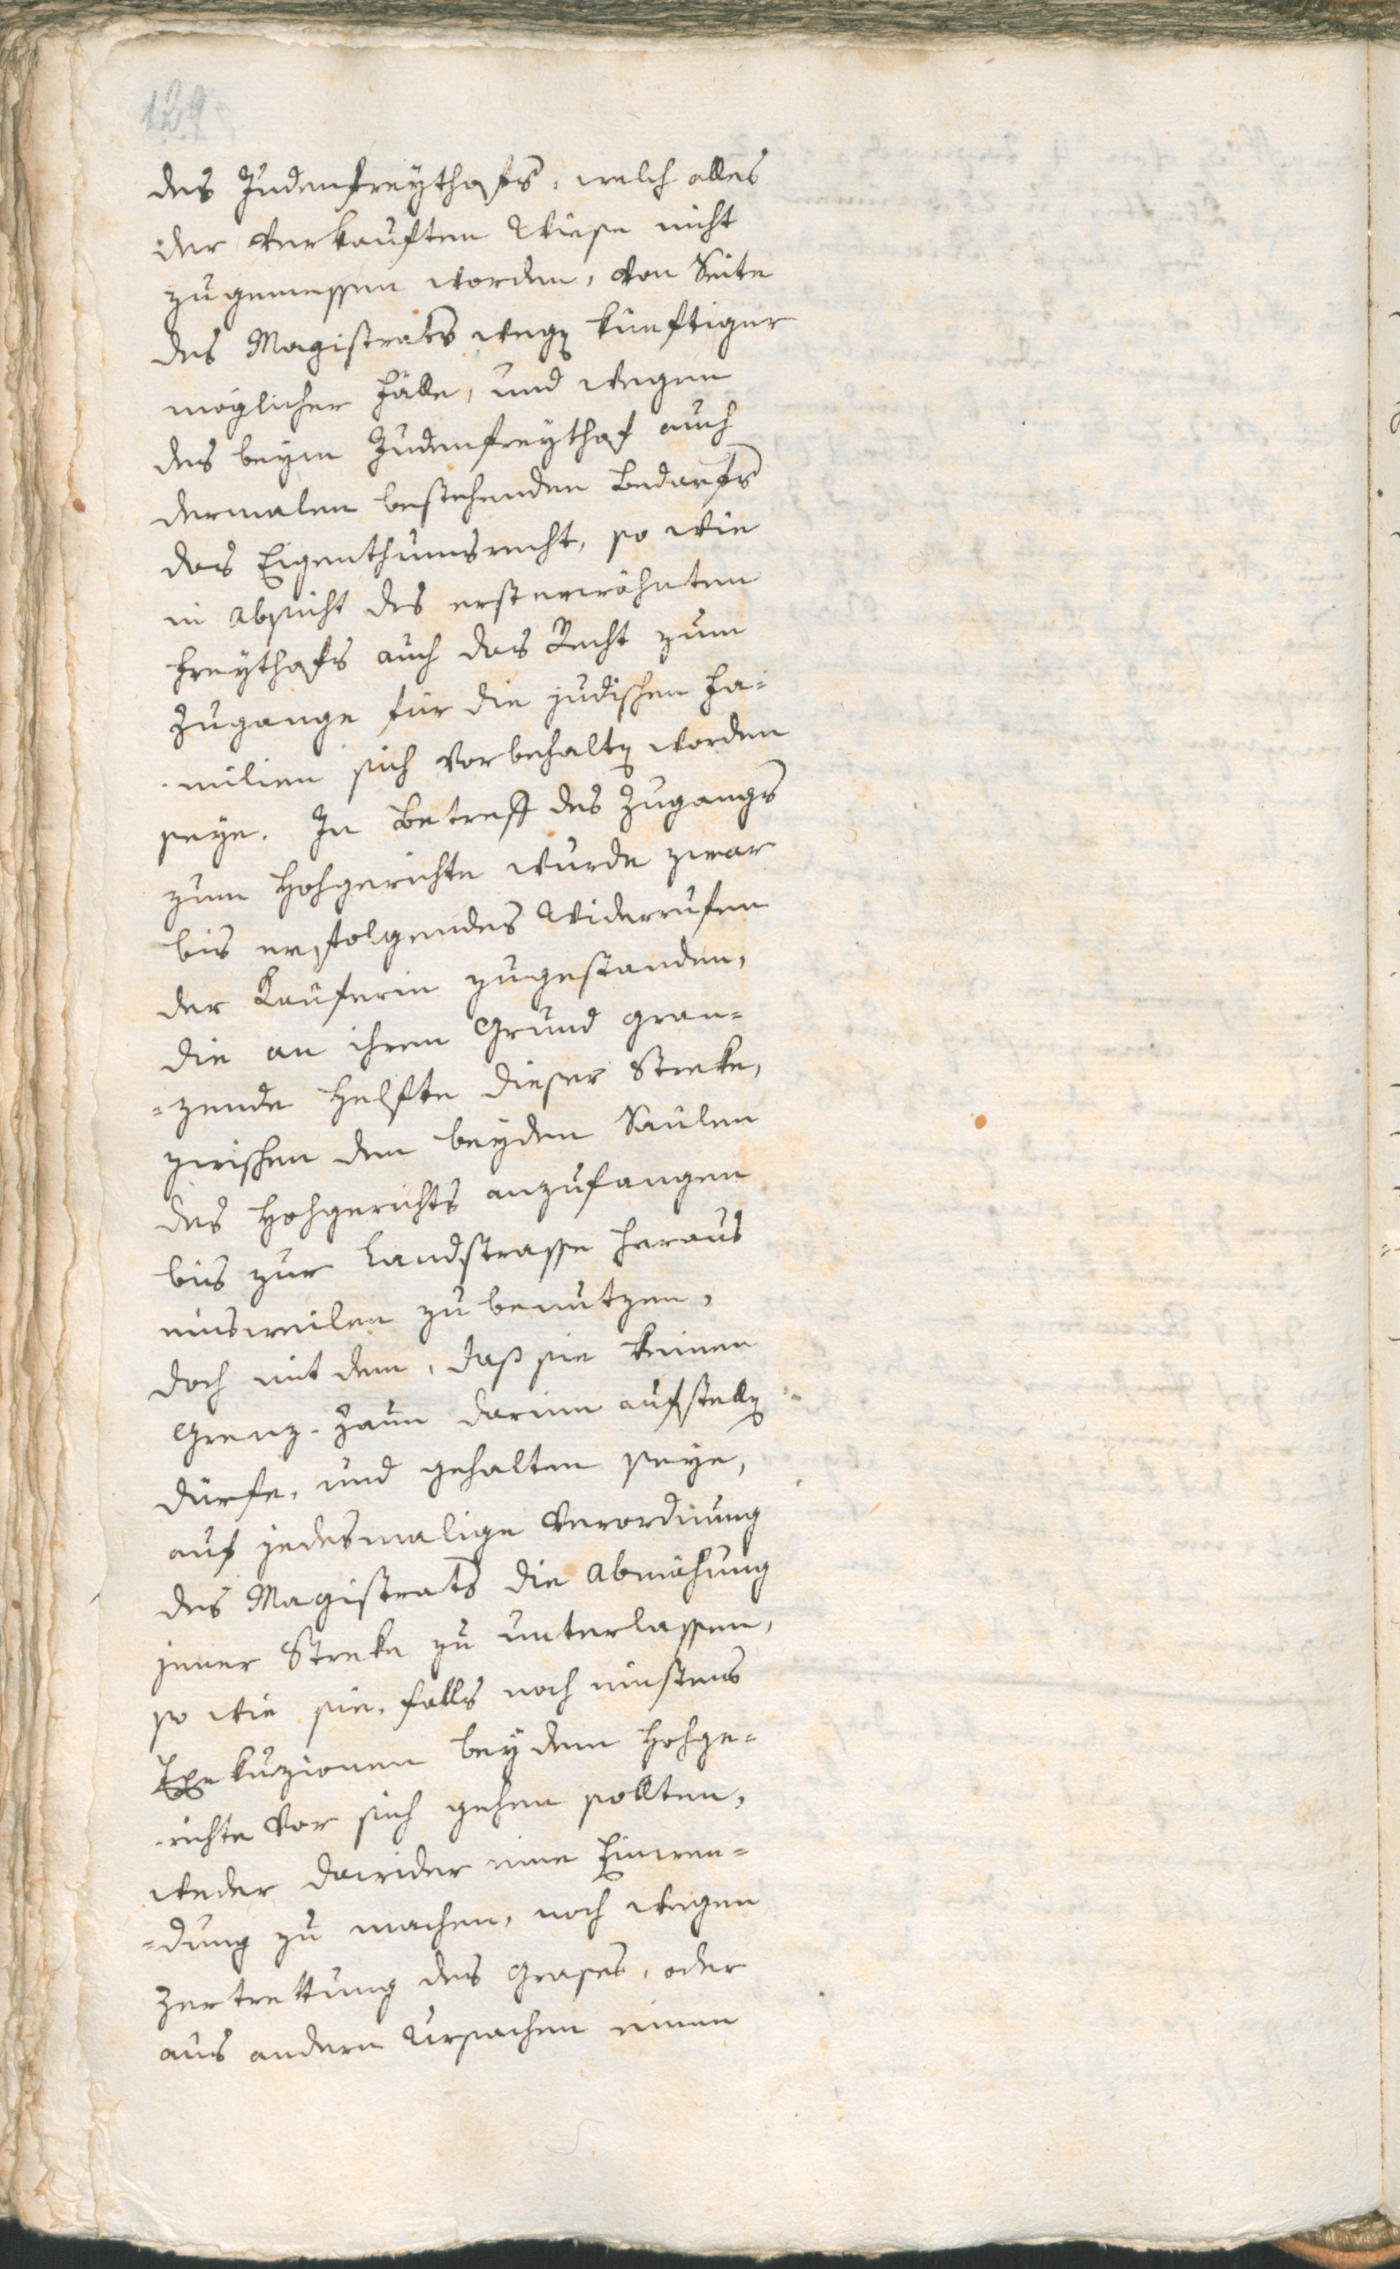 129
des Judenfreythofs, welch alles
der verkauften Wiese nicht
zugemessen worden, von Seite
des Magistrats weg künftiger
möglicher Fälle, und wegen
des beym Judenfreythof auch
dermalen bestehenden Bedarfs
das Eigenthumsrecht, so wie
in Absicht des ersterwähnten
Freythofs auch das Recht zum
Zugange für die jüdischen Fa=
milien sich vorbehalt worden
seye. In Betreff des Zugangs
zum Hohgerichte wurde zwar
bis erfolgendes Widerrufen
der Käuferin zugestanden,
die an ihren Grund gren=
=zende Helfte dieser Streke,
zwischen den beyden Säulen
des Hohgerichts anzufangen
bis zur Landstrasse heraus
einsweilen zu benutzen,
doch mit dem, daß sie keinen
Grenz-Zaun darinn aufstell
dürfe, und gehalten seye,
auf jedesmalige Verordnung
des Magistrats die Abmähung
jener Streke zu unterlassen,
so wie sie, falls noch einstens
Exekuzionen bey dem Hohge=
richte vor sich gehen sollten,
weder dawider eine Einwen=
=dung zu machen, noch wegen
Zertrettung des Grases, oder
aus andern Ursachen einen